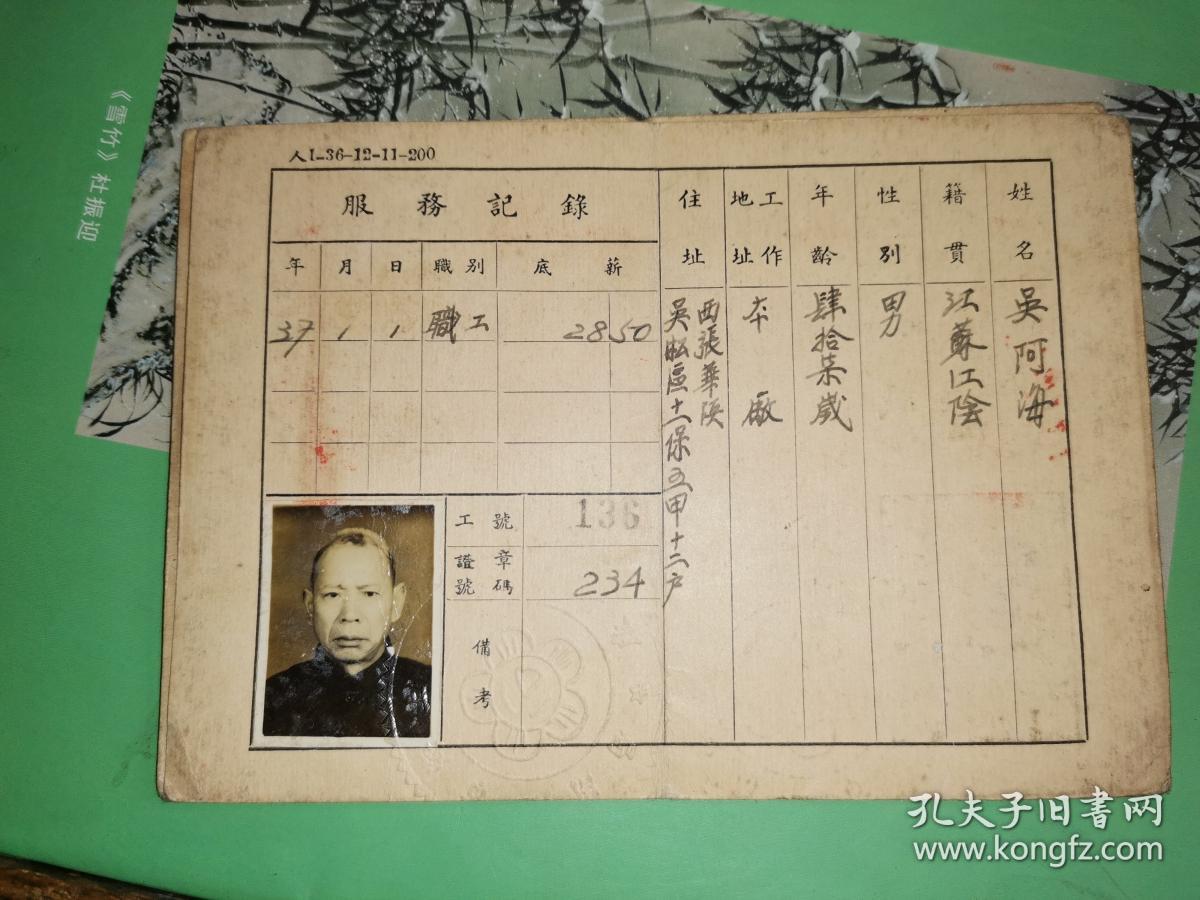 人1-36-12-11-200
姓名
吳阿海
籍貫
江蘇江陰
性別
男
年齡
肆拾柒歲
工作地址
本廠
住址
西張華浜
吳淞區十一保五甲十二户
服務記錄
年 月 日 職別 底薪
37 1 1 職工 28 50
工號 136
證章號碼 234
備考
《雪竹》杜振迎
孔夫子旧书网
www.kongfz.com